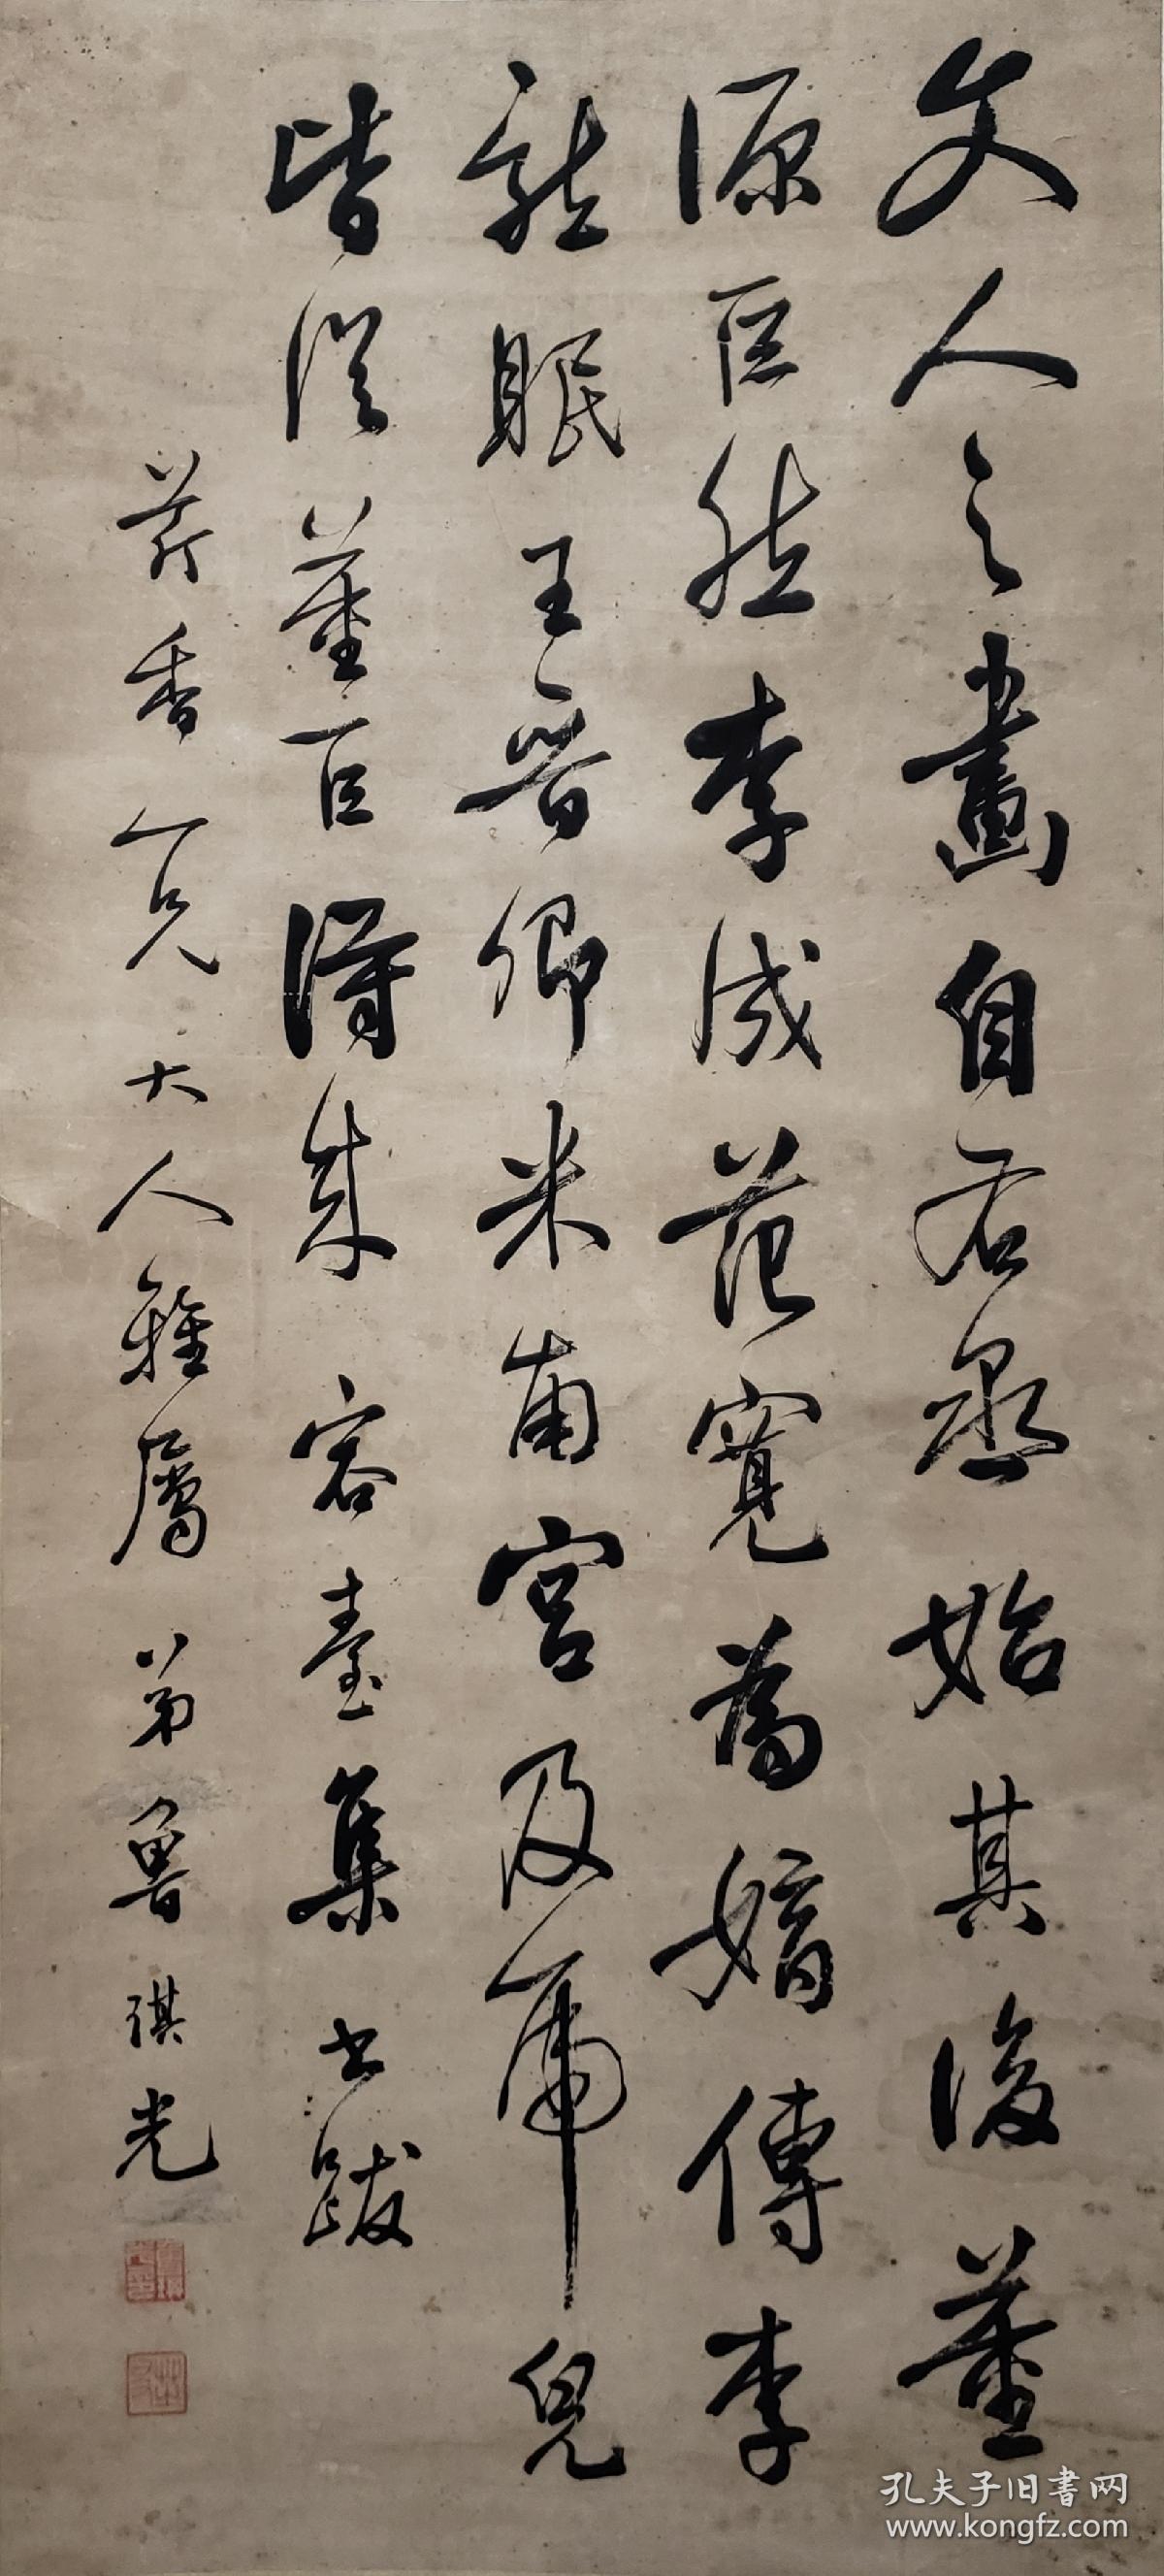 文人之畫自右丞始其後董
源巨然李成范寬為嫡傳李
龍眠王晉卿米南宮及虎兒
皆從董巨得來容臺集書跋
芹香一兄大人雅屬 弟魯琪光
孔夫子旧書网
www.kongfz.com